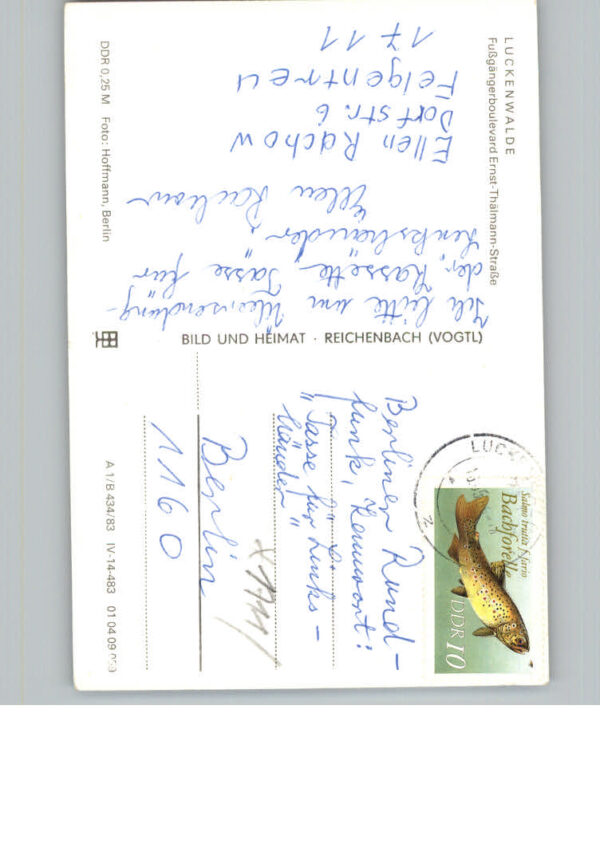 LUCKENWALDE
Fußgängerboulevard Ernst-Thälmann-Straße
Ellen Rachow
Dorfstr. 6
Felgentreu
1711
Ich bitte um Übersendung
der „Kassette“ Tasse für
Linkshänder.
Ellen Rachow
DDR 0,25 M Foto: Hoffmann, Berlin
BILD UND HEIMAT · REICHENBACH (VOGTL)
Berliner Rund-
funk, Kennwort:
„Tasse für Links-
händer“
Berlin
1160
A 1/B 434/83 IV-14-483 01 04 09
Salmo trutta f. fario
Bachforelle
DDR 10
LUCK
2